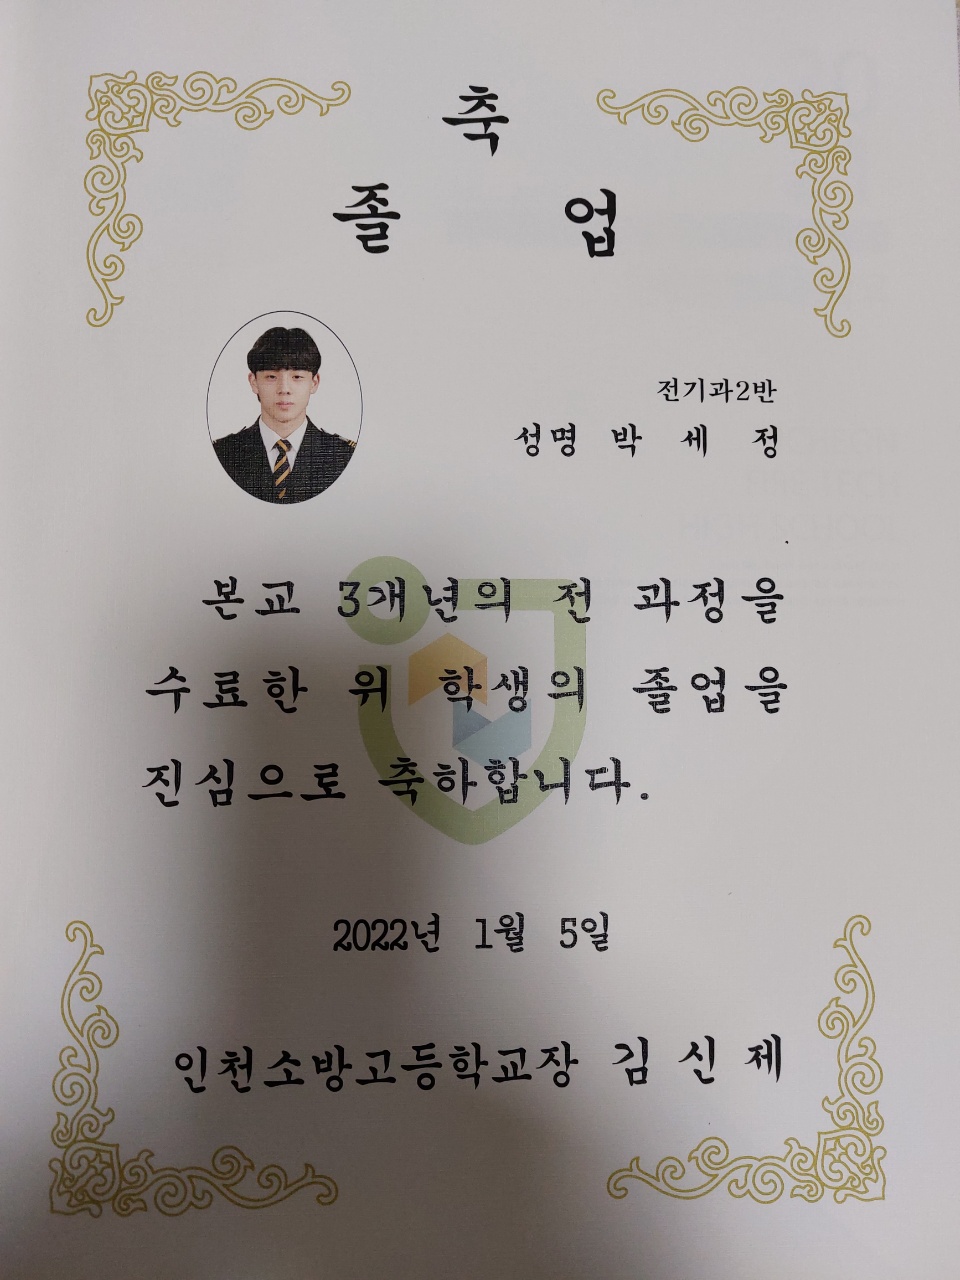 축
졸 업
전기과2반
성명 박 세 정
본교 3개년의 전 과정을
수료한 위 학생의 졸업을
진심으로 축하합니다.
2022년 1월 5일
인천소방고등학교장 김 신 제